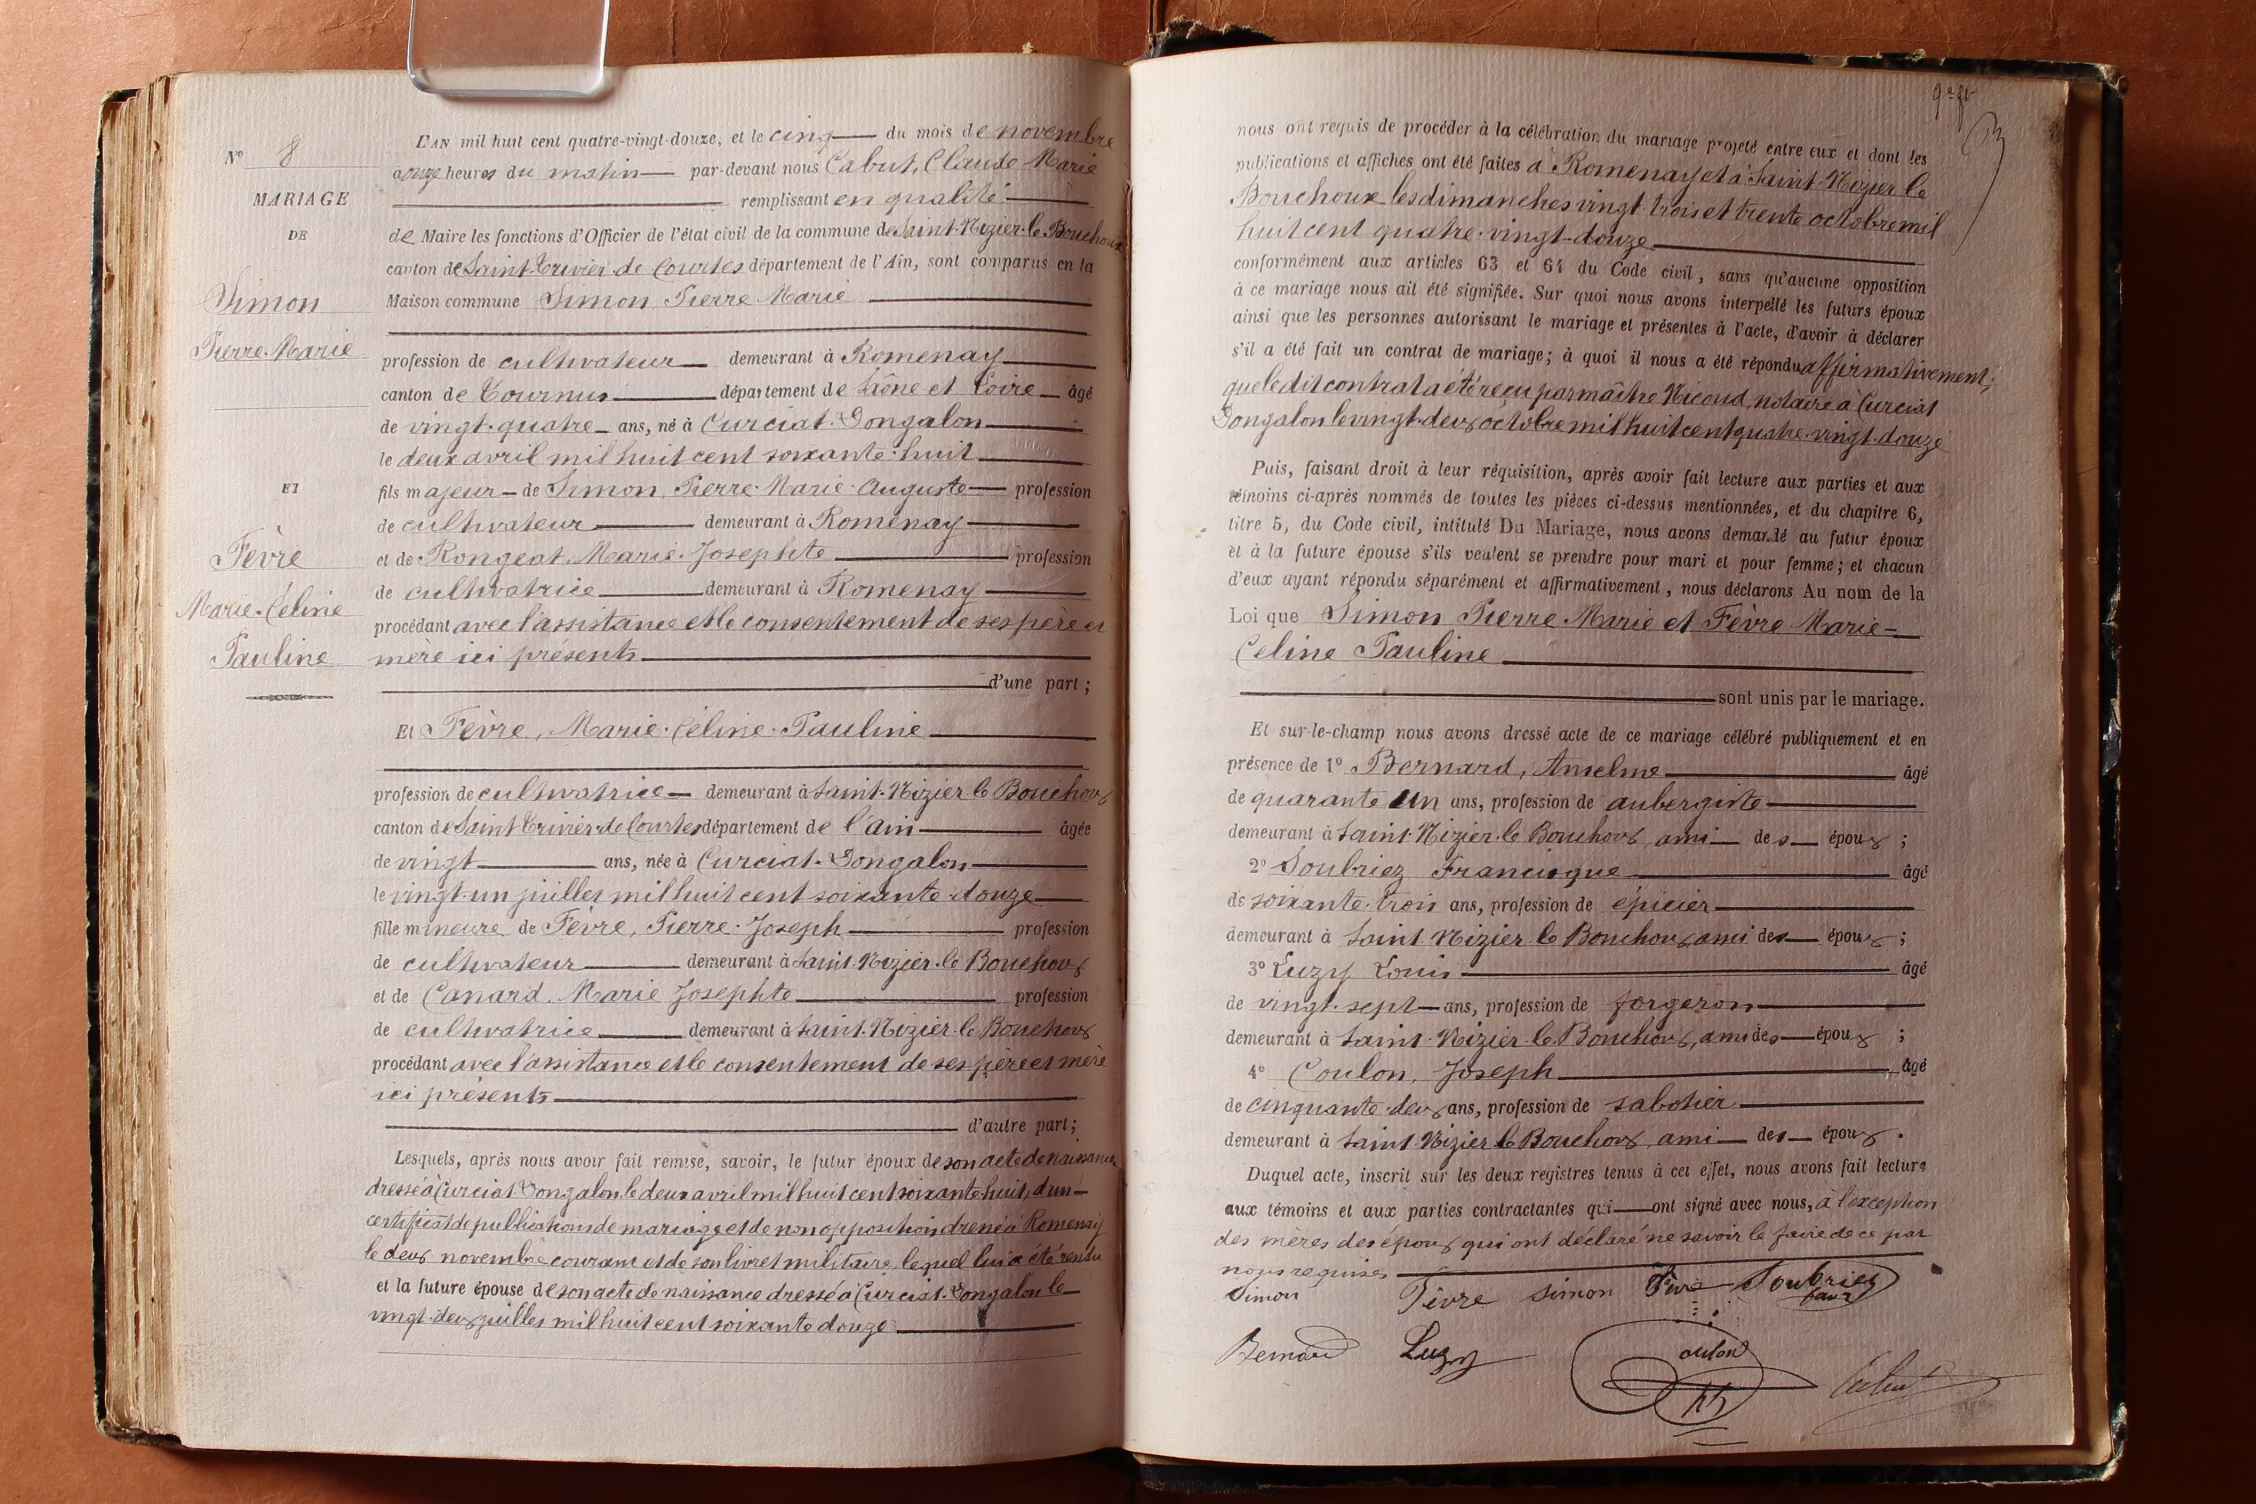 N° 8
MARIAGE
DE
Simon
Pierre-Marie
ET
Fèvre
Marie-Céline
Pauline
L'AN mil huit cent quatre-vingt-douze, et le cinq du mois de novembre
à onze heures du matin par-devant nous Cabut, Claude Marie
remplissant en qualité
de Maire les fonctions d'Officier de l'état civil de la commune de Saint-Nizier-le Bouchoux
canton de Saint-Trivier de Courtes département de l'Ain, sont comparus en la
Maison commune Simon Pierre Marie
profession de cultivateur demeurant à Romenay
canton de Tournus département de Saône et Loire âgé
de vingt-quatre ans, né à Curciat-Dongalon
le deux avril mil huit cent soixante-huit
fils majeur de Simon, Pierre-Marie-Auguste profession
de cultivateur demeurant à Romenay
et de Rongeat, Marie-Josephte profession
de cultivatrice demeurant à Romenay
procédant avec l'assistance et le consentement de ses père et
mère ici présents
d'une part ;
Et Fèvre, Marie-Céline-Pauline
profession de cultivatrice demeurant à Saint-Nizier le Bouchoux
canton de Saint Trivier-de Courtes département de l'ain âgée
de vingt ans, née à Curciat-Dongalon
le vingt-un juillet mil huit cent soixante-douze
fille mineure de Fèvre, Pierre-Joseph profession
de cultivateur demeurant à Saint-Nizier-le Bouchoux
et de Canard, Marie Josephte profession
de cultivatrice demeurant à Saint-Nizier-le Bouchoux
procédant avec l'assistance et le consentement de ses père et mère
ici présents
d'autre part ;
Lesquels, après nous avoir fait remise, savoir, le futur époux de son acte de naissance
dressé à Curciat Dongalon le deux avril mil huit cent soixante huit, d'un
certificat de publications de mariage et de non opposition dressé à Romenay
le deux novembre courant et de son livret militaire lequel lui a été rendu
et la future épouse de son acte de naissance dressé à Curciat-Dongalon le
vingt-deux juillet mil huit cent soixante douze
nous ont requis de procéder à la célébration du mariage projeté entre eux et dont les
publications et affiches ont été faites à Romenay et à Saint-Nizier le
Bouchoux les dimanches vingt-trois et trente octobre mil
huit cent quatre-vingt-douze
conformément aux articles 63 et 64 du Code civil, sans qu'aucune opposition
à ce mariage nous ait été signifiée. Sur quoi nous avons interpellé les futurs époux
ainsi que les personnes autorisant le mariage et présentes à l'acte, d'avoir à déclarer
s'il a été fait un contrat de mariage ; à quoi il nous a été répondu affirmativement ;
que le dit contrat a été reçu par maître Nicoud, notaire à Curciat
Dongalon le vingt-deux octobre mil huit cent quatre-vingt-douze
Puis, faisant droit à leur réquisition, après avoir fait lecture aux parties et aux
témoins ci-après nommés de toutes les pièces ci-dessus mentionnées, et du chapitre 6,
titre 5, du Code civil, intitulé Du Mariage, nous avons demandé au futur époux
et à la future épouse s'ils veulent se prendre pour mari et pour femme ; et chacun
d'eux ayant répondu séparément et affirmativement, nous déclarons Au nom de la
Loi que Simon Pierre Marie et Fèvre Marie-
Celine Pauline
sont unis par le mariage.
Et sur-le-champ nous avons dressé acte de ce mariage célébré publiquement et en
présence de 1° Bernard, Anselme âgé
de quarante un ans, profession de aubergiste
demeurant à Saint-Nizier-le Bouchoux, ami des époux ;
2° Soubriez Francisque âgé
de soixante-trois ans, profession de épicier
demeurant à Saint Nizier le Bouchoux, ami des époux ;
3° Luzy Louis âgé
de vingt-sept ans, profession de forgeron
demeurant à Saint-Nizier-le Bouchoux, ami des époux ;
4° Coulon, Joseph âgé
de cinquante-deux ans, profession de sabotier
demeurant à Saint-Nizier le Bouchoux, ami des époux.
Duquel acte, inscrit sur les deux registres tenus à cet effet, nous avons fait lecture
aux témoins et aux parties contractantes qui ont signé avec nous, à l'exception
des mères des époux qui ont déclaré ne savoir le faire de ce par
nous requises
Simon Fèvre Simon Fèvre Soubriez
Bernard Luzy Coulon Cabut